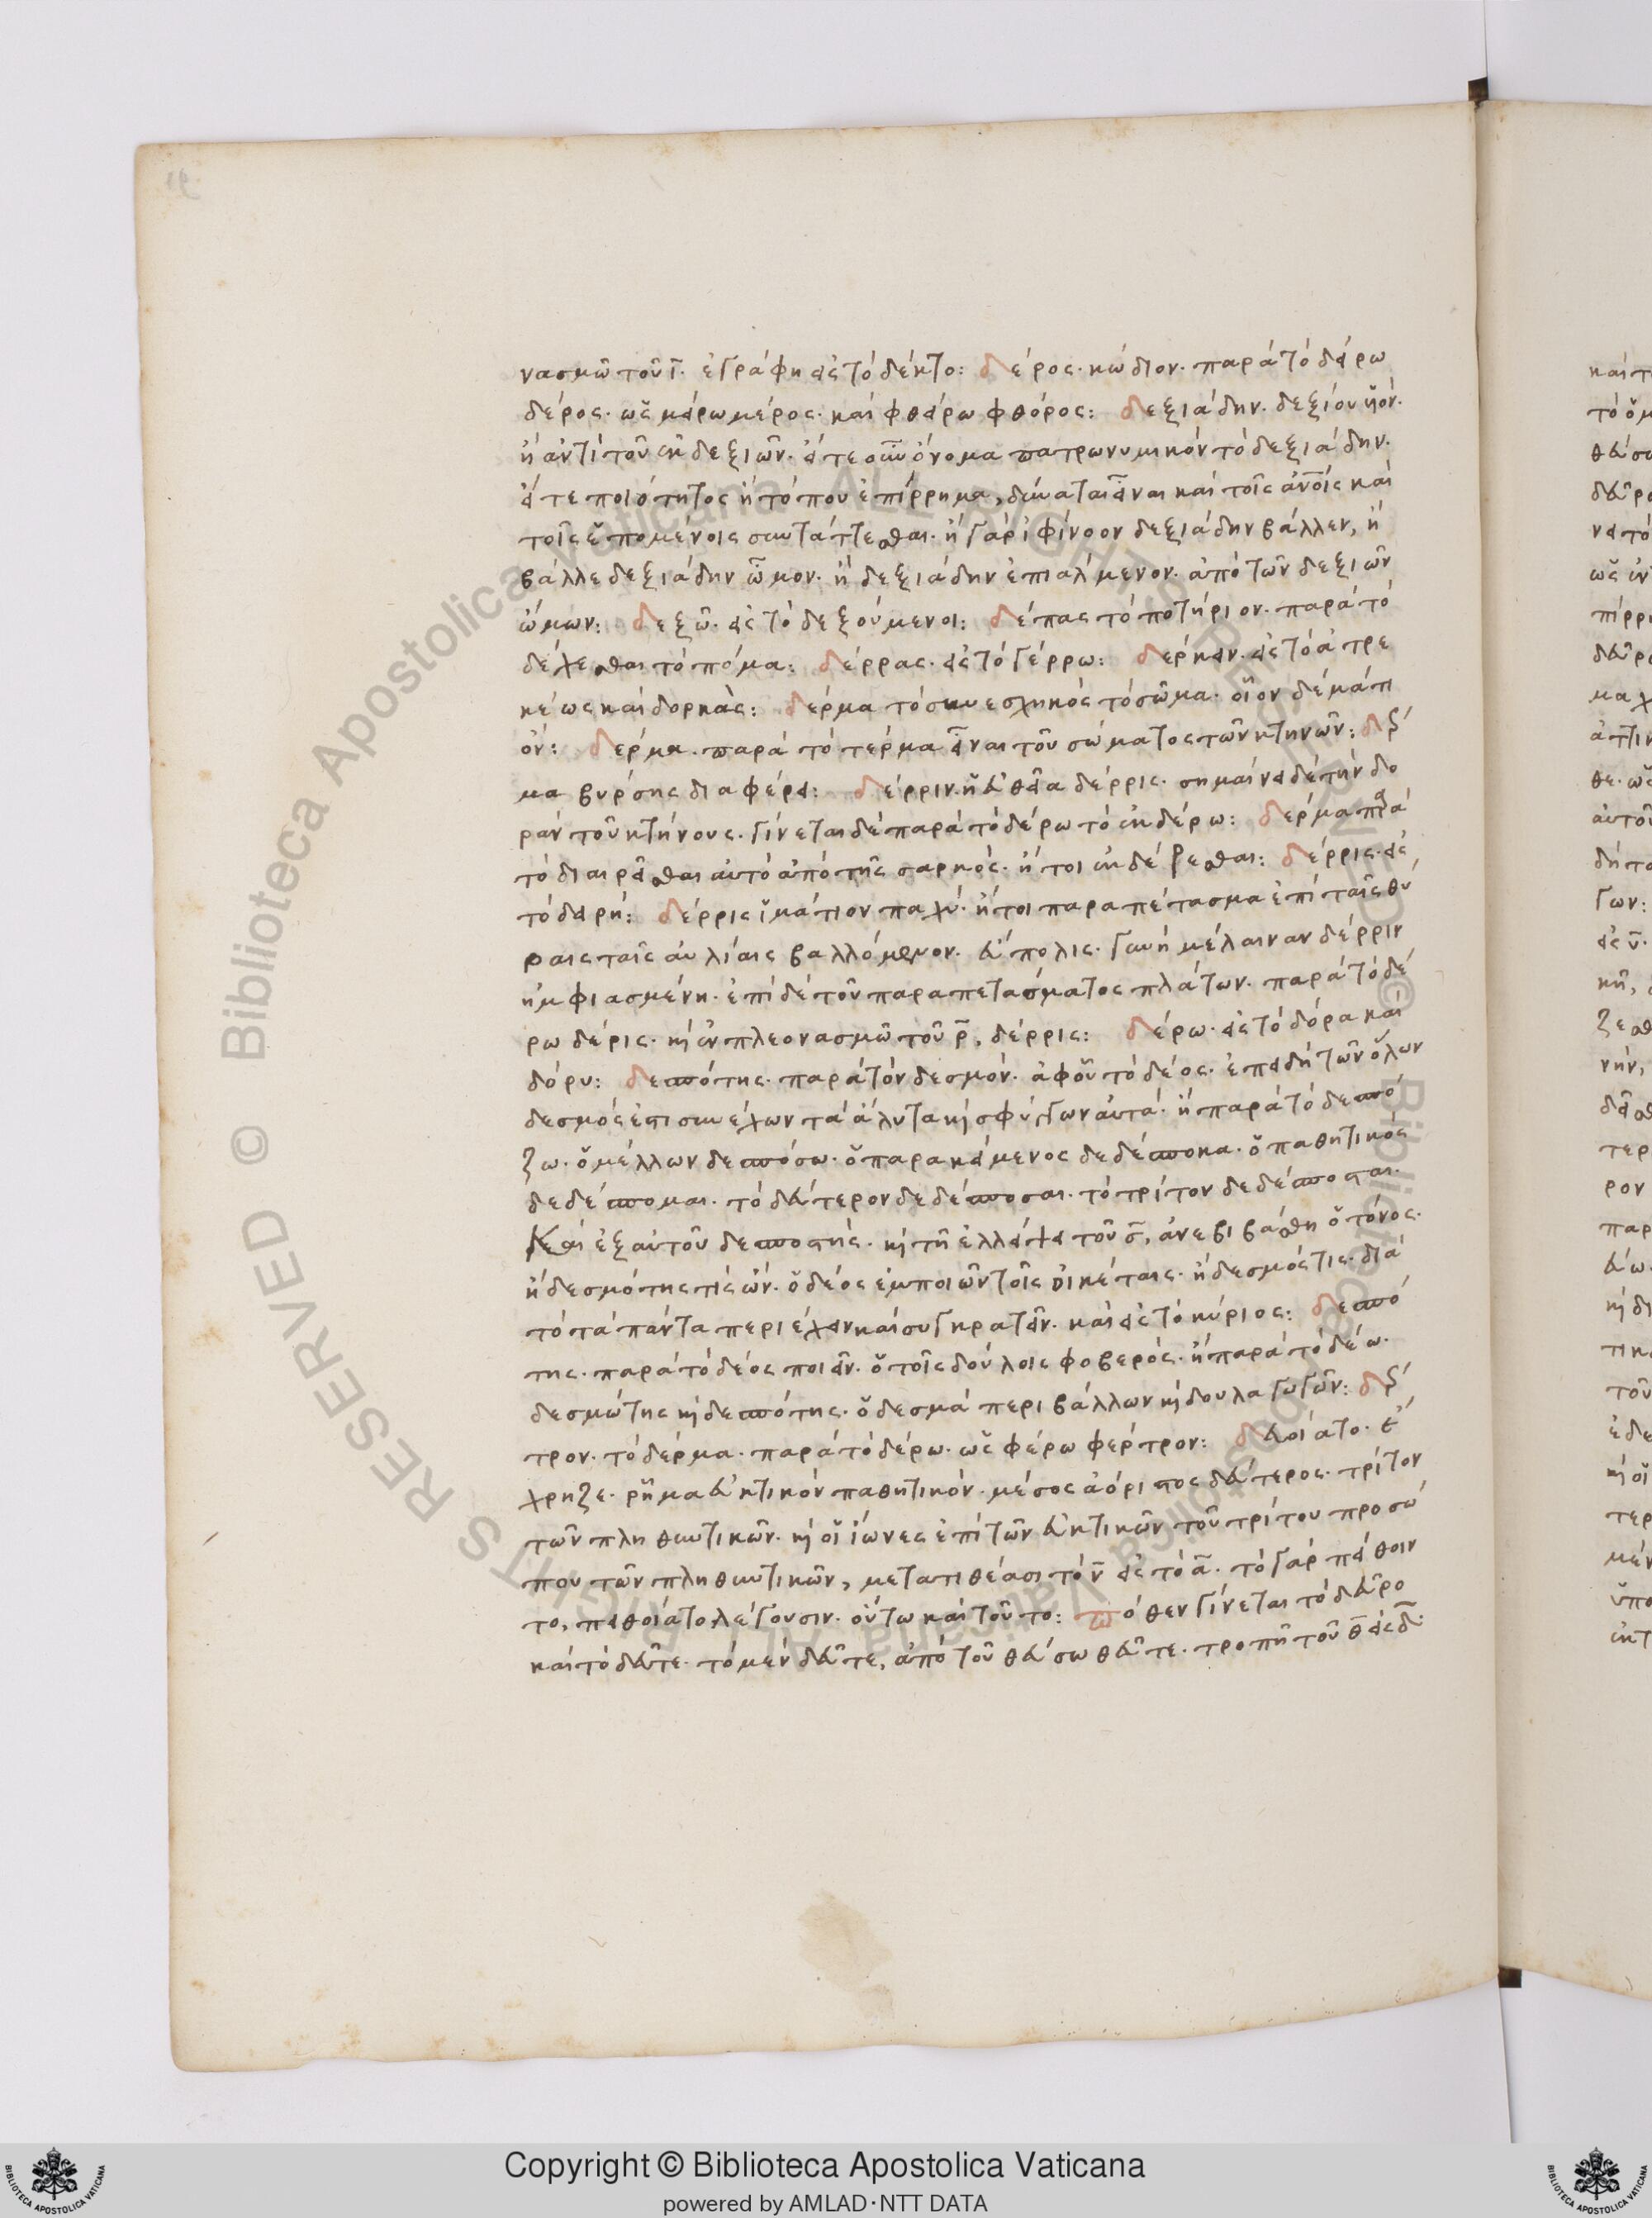 νασμῶ τοῦ ῑ. ἐγράφη εἰς τὸ δέκτο: δέρος. κώδιον. παρὰ τὸ δείρω
δέρος. ὡς μείρω μέρος. καὶ φθείρω φθόρος: δεξιάδην. δεξιὸν
ἢ ἀντὶ τοῦ ἐκ δεξιῶν. εἴτε οὖν ὄνομα πατρωνυμικὸν τὸ δεξιάδην.
εἴτε ποιότητος ἢ τόπου ἐπίρρημα, δύναται εἶναι καὶ τοῖς ἄνοις καὶ
τοῖς ἑπομένοις συντάττεσθαι. ἢ γὰρ ἰφίνοον δεξιάδην βάλλεν, ἢ
βάλλε δεξιάδην ὦμον. ἢ δεξιάδην ἐπιαλμενον. ἀπὸ τῶν δεξιῶν
ὤμων: δεξῶ. εἰς τὸ δεξούμενοι: δέπας τὸ ποτήριον. παρὰ τὸ
δέχεσθαι τὸ πόμα: δέρρας. εἰς τὸ γέρρω: δέρκειν. εἰς τὸ ἀτρε
κέως καὶ δορκὰς: δέρμα τὸ συνεσχηκὸς τὸ σῶμα. οἷον δέμά τι
ὄν: δέρμα. παρὰ τὸ τέρμα εἶναι τοῦ σώματος τῶν κτηνῶν: δέρ
μα βύρσης διαφέρει: δέρριν. ἡ εὐθεῖα δέρρις. σημαίνει δὲ τὴν δο
ρὰν τοῦ κτήνους. γίνεται δὲ παρὰ τὸ δέρω τὸ ἐκδέρω: δέρμα παρὰ
τὸ διαιρεῖσθαι αὐτὸ ἀπὸ τῆς σαρκός. ἤτοι ἐκδέρεσθαι: δέρρις. εἰς
τὸ δειρή: δέρρις ἱμάτιον παχύ. ἤτοι παραπέτασμα ἐπὶ ταῖς θύ
ραις ταῖς αὐλίαις βαλλόμενον. εὔπολις. γυνὴ μέλαιναν δέρριν
ἠμφιασμένη. ἐπὶ δὲ τοῦ παραπετάσματος πλάτων. παρὰ τὸ δέ
ρω δέρις. κὶ ἐν πλεονασμῶ τοῦ ρ̄, δέρρις: δέρω. εἰς τὸ δόρα καὶ
δόρυ: δεσπότης. παρὰ τὸν δεσμόν. ἀφοῦ τὸ δέος. ἐπειδὴ τῶν ὅλων
δεσμός ἐστι συνέχων τὰ ἄλυτα κὶ σφύγγων αὐτά. ἢ παρὰ τὸ δεσπό
ζω. ὁ μέλλων δεσπόσω. ὁ παρακείμενος δεδέσποκα. ὁ παθητικός
δεδέσπομαι. τὸ δεύτερον δεδέσποσαι. τὸ τρίτον δεδέσποσται.
καὶ ἐξ αὐτοῦ δεσποστής. κὶ τῆ ἐλλείψει τοῦ σ̄, ἀνεβιβάσθη ὁ τόνος.
ἢ δεσμότης τίς ὤν. ὁ δέος ἐμποιῶν τοῖς οἰκέταις. ἢ δεσμός τις. διὰ
τὸ τὰ πάντα περιέχειν καὶ συγκρατεῖν. καὶ εἰς τὸ κύριος: δεσπό
της. παρὰ τὸ δέος ποιεῖν. ὁ τοῖς δούλοις φοβερός. ἢ παρὰ τὸ δέω.
δεσμώτης κὶ δεσπότης. ὁ δεσμὰ περιβάλλων κὶ δουλαγωγῶν: δέρ
τρον. τὸ δέρμα. παρὰ τὸ δέρω. ὡς φέρω φέρτρον: δευοίατο. ἔ
χρηζε. ῥῆμα εὐκτικὸν παθητικόν. μέσος ἀόριστος δεύτερος. τρίτον
τῶν πληθυντικῶν. κὶ οἱ ἴωνες ἐπὶ τῶν εὐκτικῶν τοῦ τρίτου προσώ
που τῶν πληθυντικῶν, μετατιθέασι τὸ ν̄ εἰς τὸ ᾱ. τὸ γὰρ πείθοιν
το, πειθοίατο λέγουσιν. οὕτω καὶ τοῦτο: πόθεν γίνεται τὸ δεῦρο
καὶ τὸ δεῦτε. τὸ μὲν δεῦτε, ἀπὸ τοῦ θεύσω θεῦτε. τροπῆ τοῦ θ̄ εἰς δ̄.
Copyright © Biblioteca Apostolica Vaticana
powered by AMLAD·NTT DATA